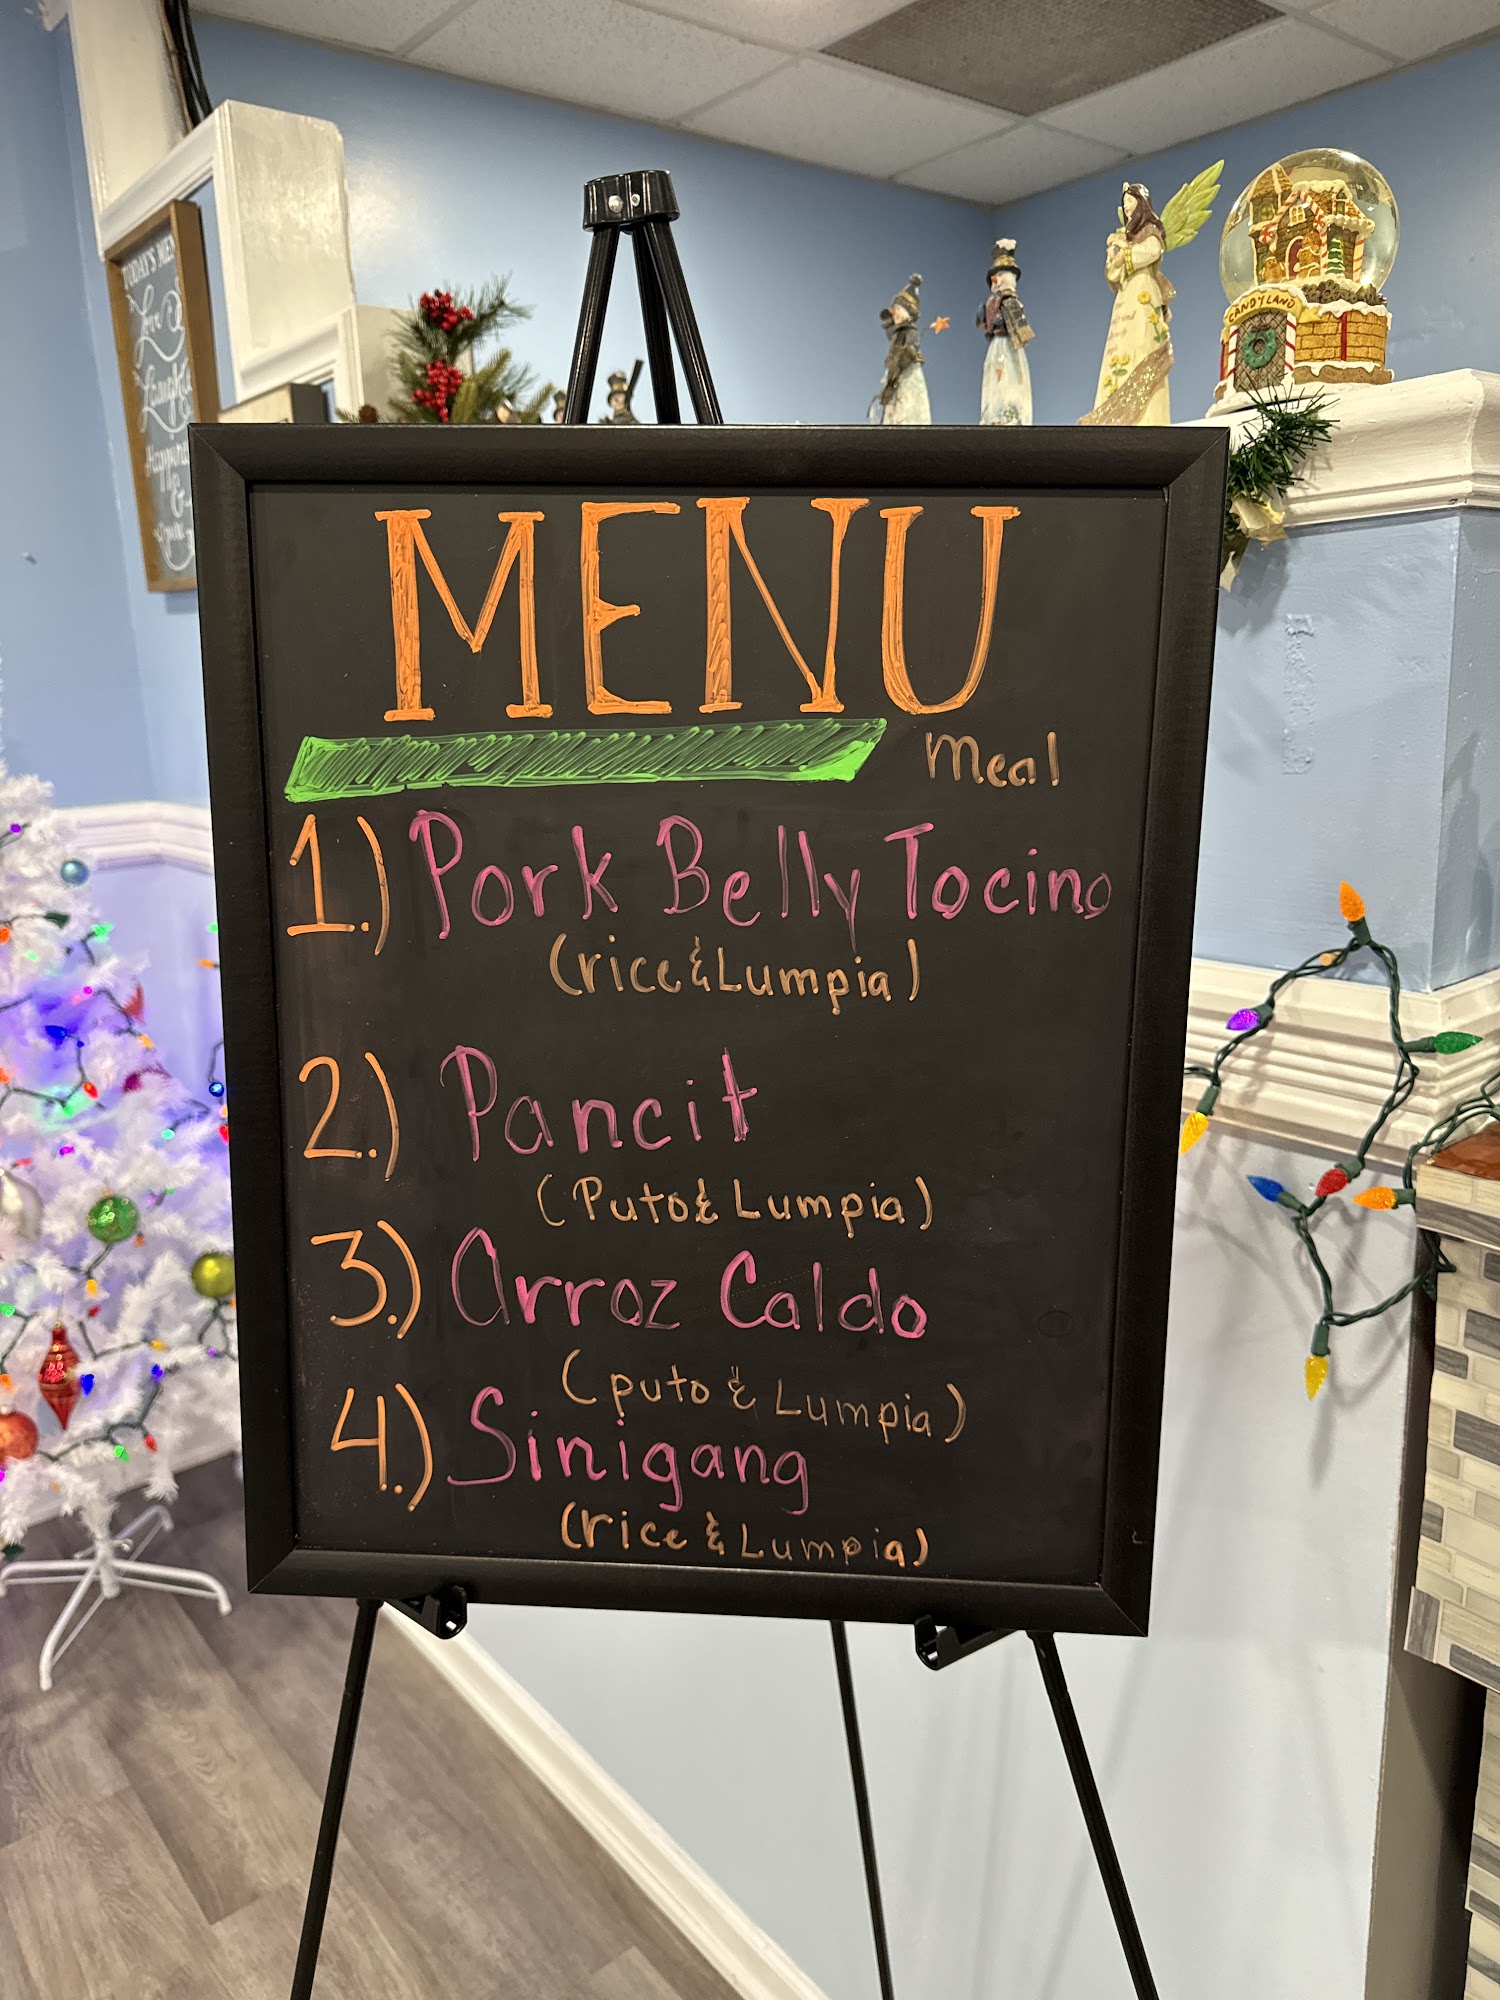 TODAY'S MENU
Love
Laughter
Happiness
&
CANDYLAND
MENU
Meal
1.) Pork Belly Tocino
(rice & Lumpia)
2.) Pancit
(Puto & Lumpia)
3.) Arroz Caldo
(puto & Lumpia)
4.) Sinigang
(rice & Lumpia)